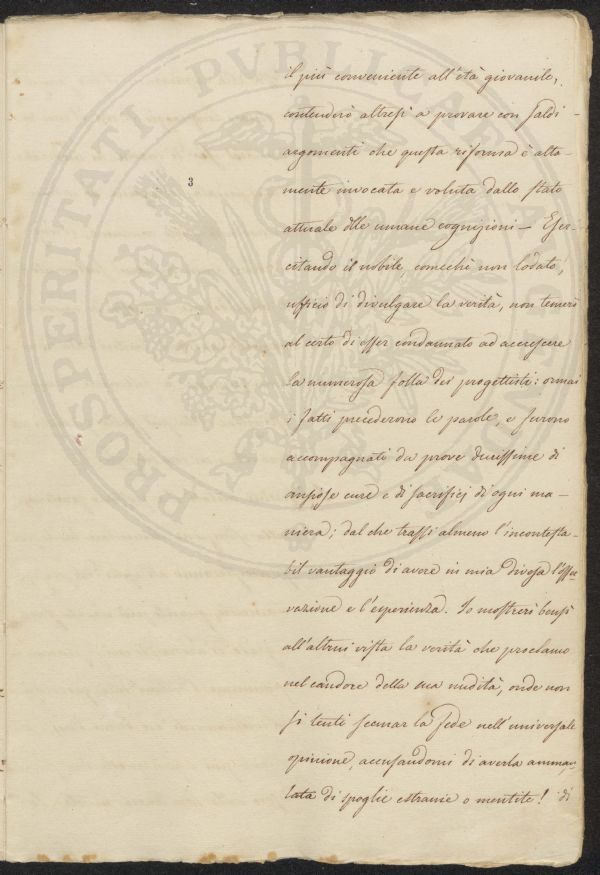 3
il più conveniente all'età giovanile,
contenderò altresì a provare con saldi
argomenti che questa riforma è alta-
mente invocata e voluta dallo stato
attuale delle umane cognizioni — Eser-
citando il nobile, comechè non lodato,
ufficio di divulgare la verità, non temerò
al certo di esser condannato ad accrescere
la numerosa folla dei progettisti: ormai
i fatti precederono le parole, e furono
accompagnati da prove durissime di
ansiose cure e di sacrifici di ogni ma-
niera; dal che trassi almeno l'incontesta-
bil vantaggio di avere in mia difesa l'osser
vazione e l'esperienza. Io mostrerò bensì
all'altrui vista la verità che proclamo
nel candore della sua nudità, onde non
si tenti scemar la fede nell'universale
opinione, accusandomi di averla amman-
tata di spoglie estranie o mentite! di
PROSPERITATI PVBLICAE